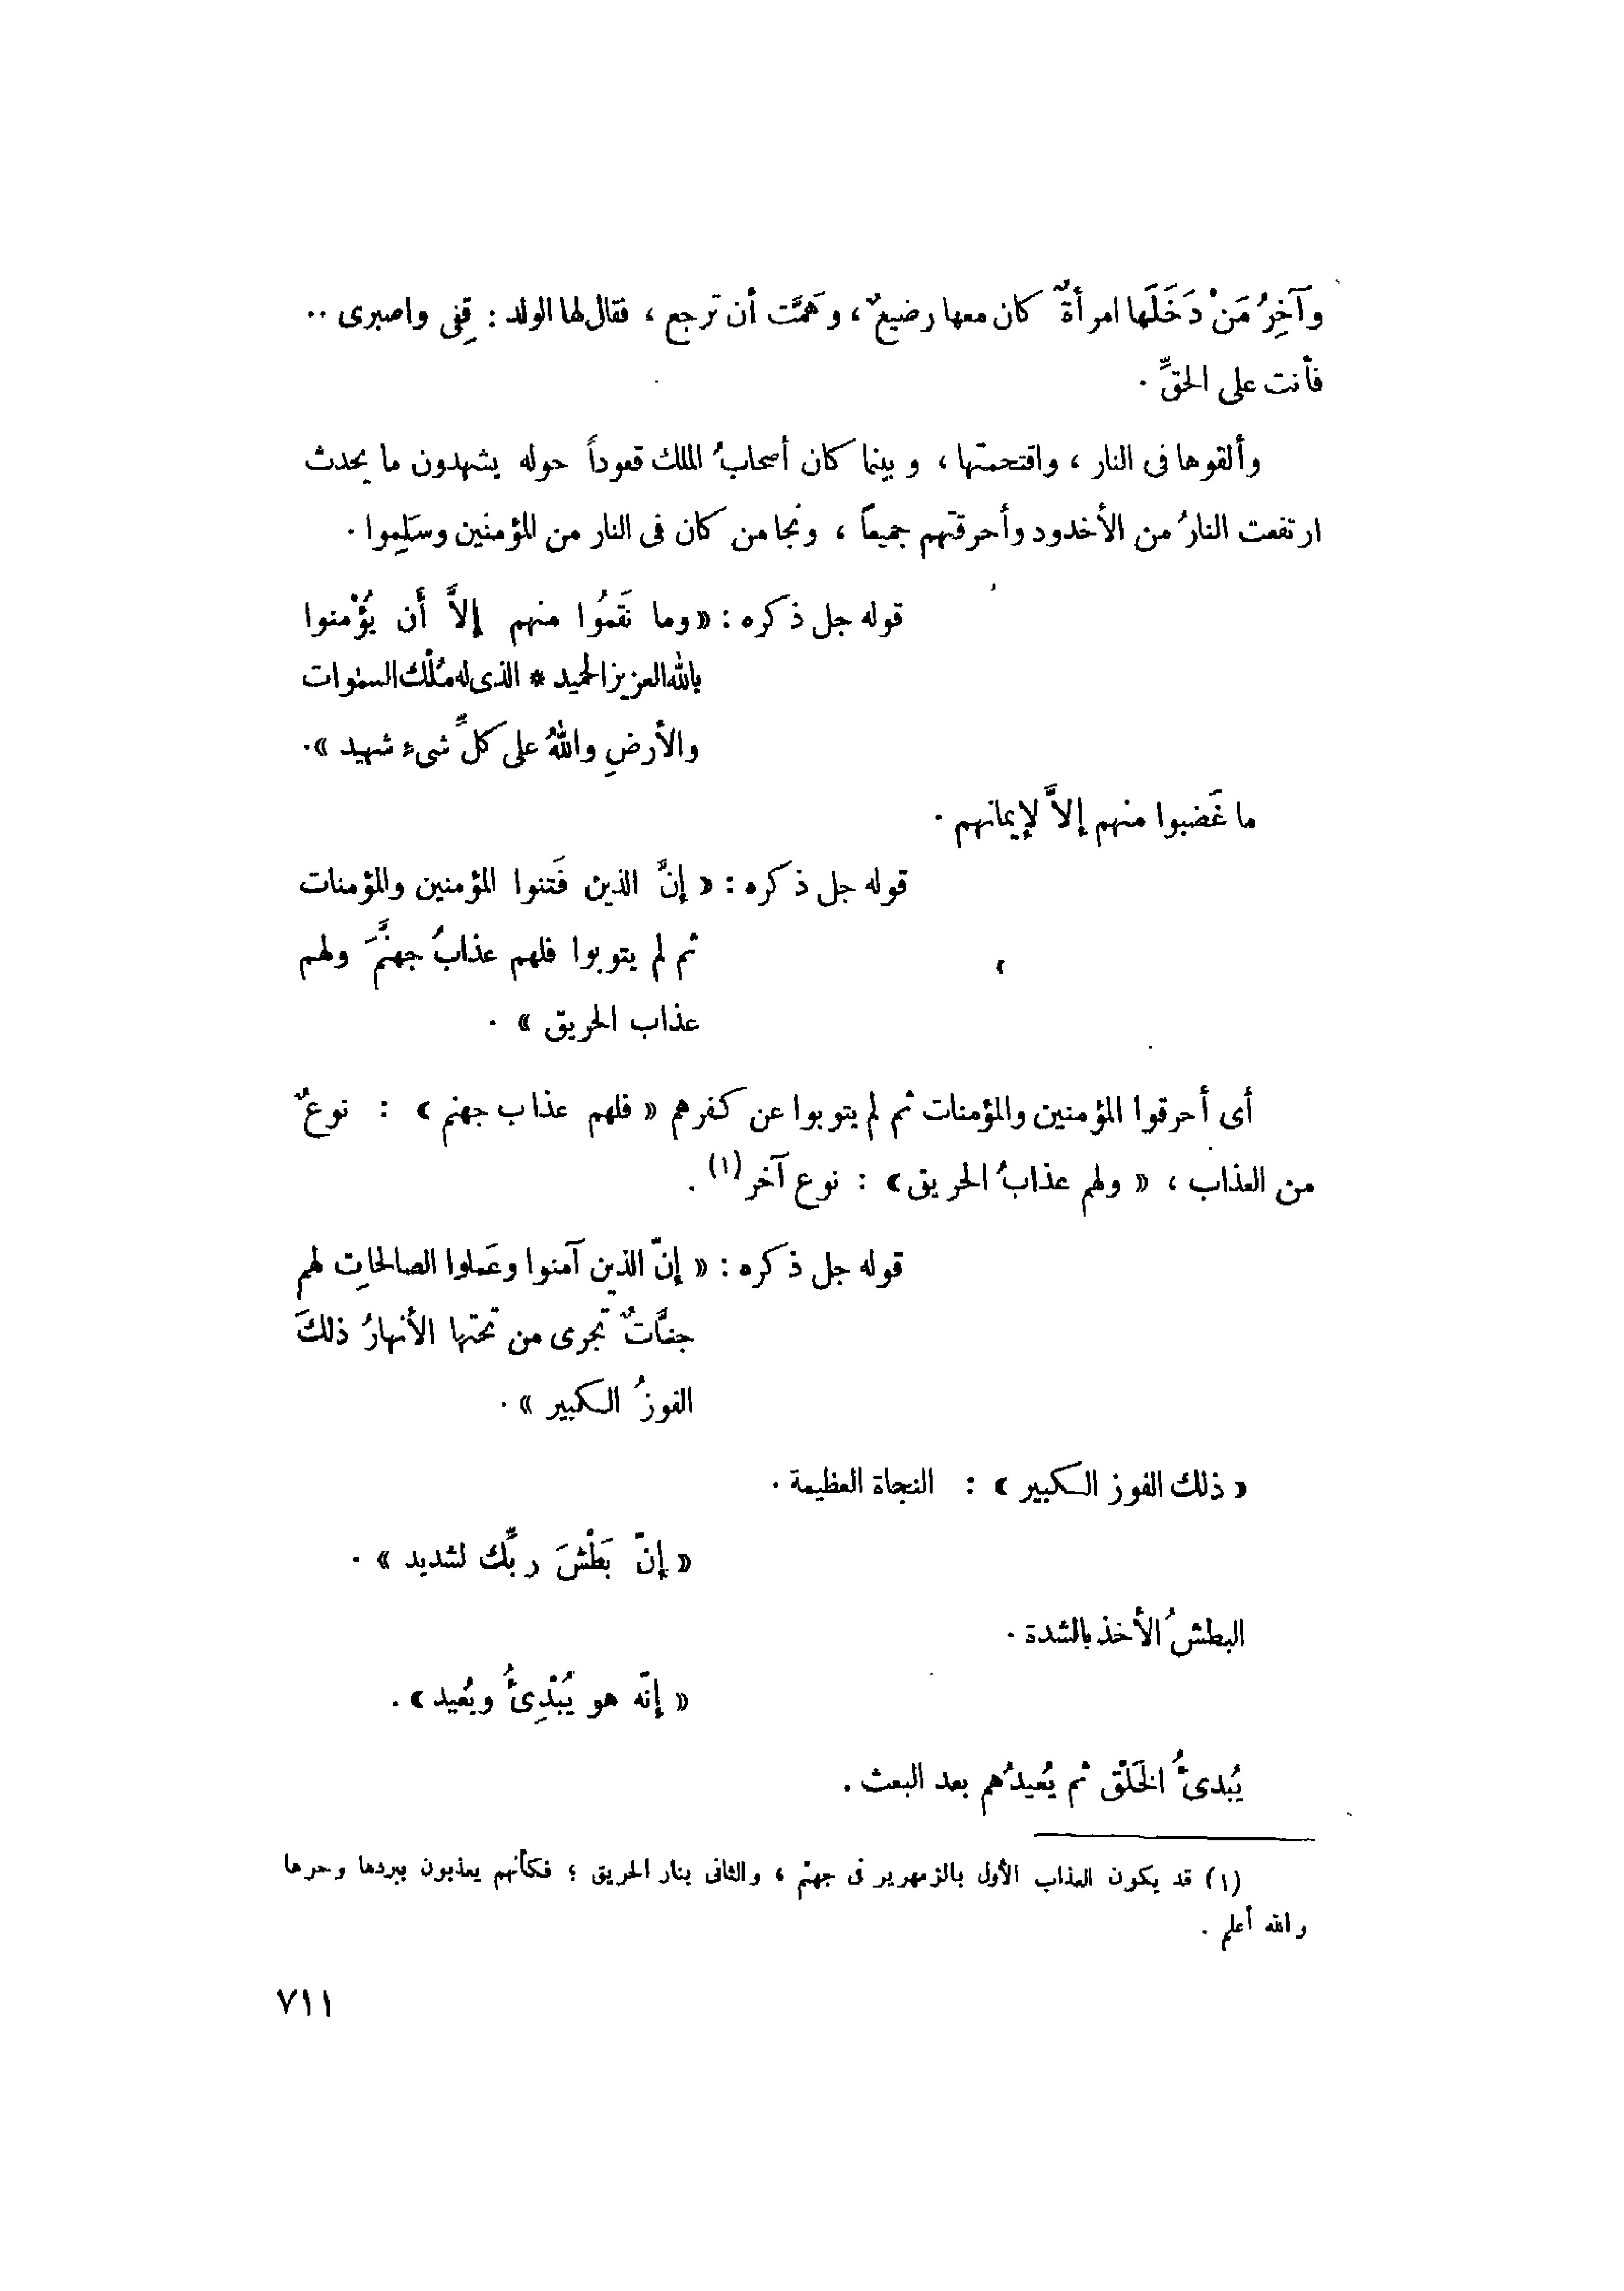 وَآخِرُ مَنْ دَخَلَها امرأةٌ كان معها رضيعٌ ، وهَمَّت أن ترجع ، فقال لها الولد : قِفِى واصبرى ..
فأنت على الحقِّ .
وألقوها فى النار ، واقتحمتها ، وبينما كان أصحابُ الملك قعوداً حوله يشهدون ما يحدث
ارتفعت النارُ من الأخدود وأحرقتهم جميعاً ، ونجا من كان فى النار من المؤمنين وسَلِموا .
قوله جل ذكره : « وما نَقَمُوا منهم إلاَّ أَن يُؤْمنوا
بالله العزيز الحميد * الذى له مُلْك السمٰوات
والأرضِ واللهُ على كلِّ شىء شهيد » .
ما غَضبوا منهم إلاَّ لإيمانهم .
قوله جل ذكره : « إنَّ الذين فَتنوا المؤمنين والمؤمنات
ثم لم يتوبوا فلهم عذابُ جهنَّمَ ولهم
عذاب الحريق » .
أى أحرقوا المؤمنين والمؤمنات ثم لم يتوبوا عن كفرهم « فلهم عذاب جهنم » : نوعٌ
من العذاب ، « ولهم عذابُ الحريق » : نوع آخر (١) .
قوله جل ذكره : « إنّ الذين آمنوا وعَملوا الصالحاتِ لهم
جنَّاتٌ تجرى من تحتها الأنهارُ ذلكَ
الفوزُ الكبير » .
« ذلك الفوز الكبير » : النجاة العظيمة .
« إنّ بَطْشَ ربِّك لشديد » .
البطشُ الأخذ بالشدة .
« إنّه هو يُبْدِئُ ويُعيد » .
يُبدئُ الخَلْق ثم يُعيدُهم بعد البعث .
(١) قد يكون العذاب الأول بالزمهرير فى جهنم ، والثانى بنار الحريق ؛ فكأنهم يعذبون ببردها وحرها
والله أعلم .
٧١١